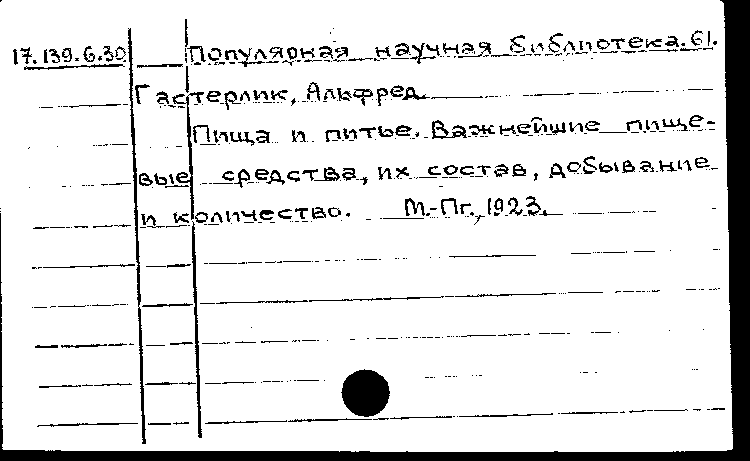 17.139.6.30 Популярная научная библиотека. 61.
Гастерлик, Альфред.
Пища и питье. Важнейшие пище-
вые средства, их состав, добывание
и количество. М.-Пг., 1923.